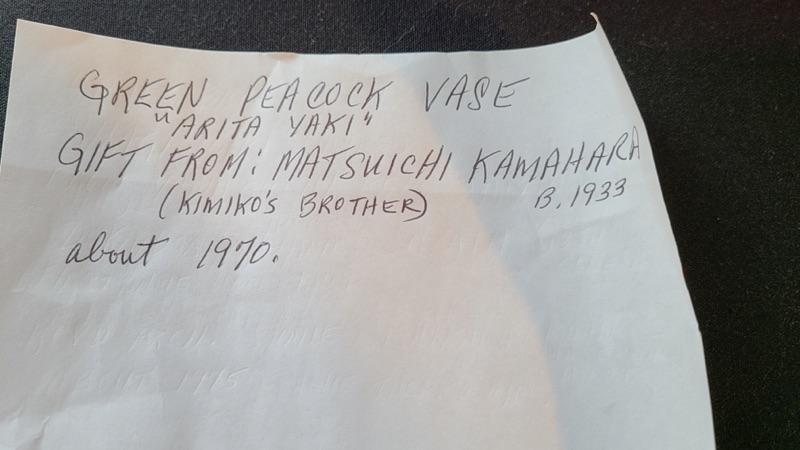 GREEN PEACOCK VASE
"ARITA YAKI"
GIFT FROM: MATSUICHI KAMAHARA
(KIMIKO'S BROTHER) B. 1933
about 1970.